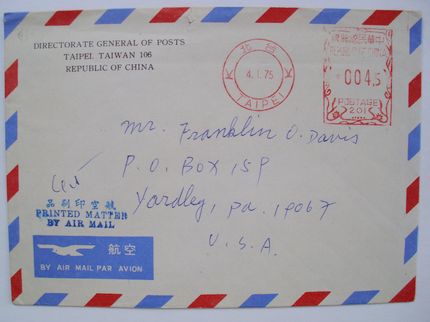 DIRECTORATE GENERAL OF POSTS
TAIPEI, TAIWAN 106
REPUBLIC OF CHINA
北台
4.1.75
TAIPEI
中華民國郵票
0045
POSTAGE
201
Mr. Franklin O. Davis
P.O. Box 15P
Yardley, Pa. 19067
U.S.A.
品刷印空航
PRINTED MATTER
BY AIR MAIL
航空
BY AIR MAIL PAR AVION